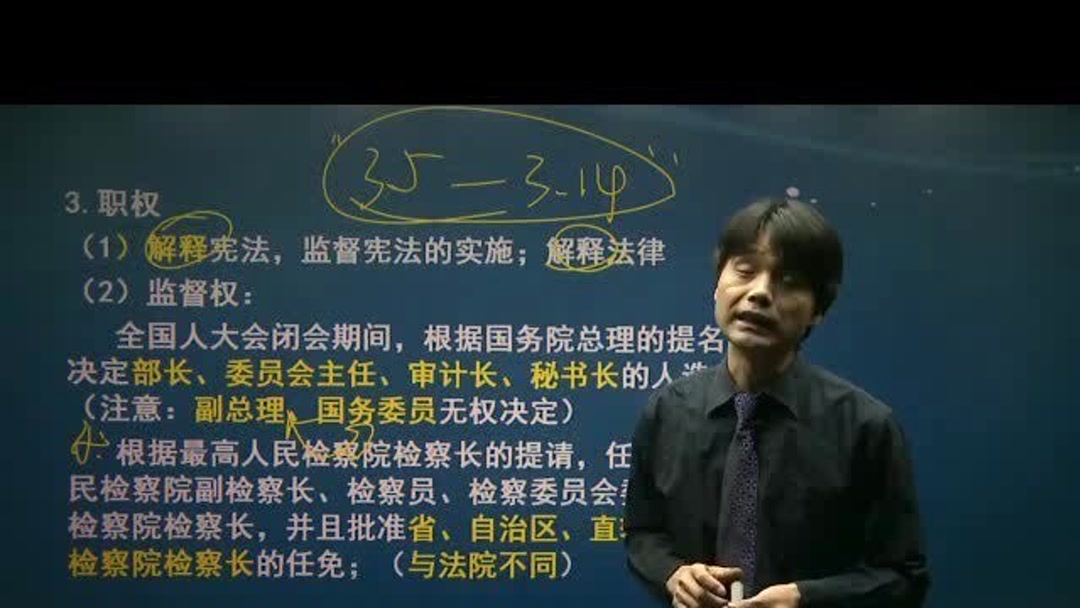 35 — 3.14
3. 职权
（1）解释宪法，监督宪法的实施；解释法律
（2）监督权：
全国人大会闭会期间，根据国务院总理的提名
决定部长、委员会主任、审计长、秘书长的人选
（注意：副总理、国务委员无权决定）
根据最高人民检察院检察长的提请，任
民检察院副检察长、检察员、检察委员会
检察院检察长，并且批准省、自治区、直
检察院检察长的任免；（与法院不同）